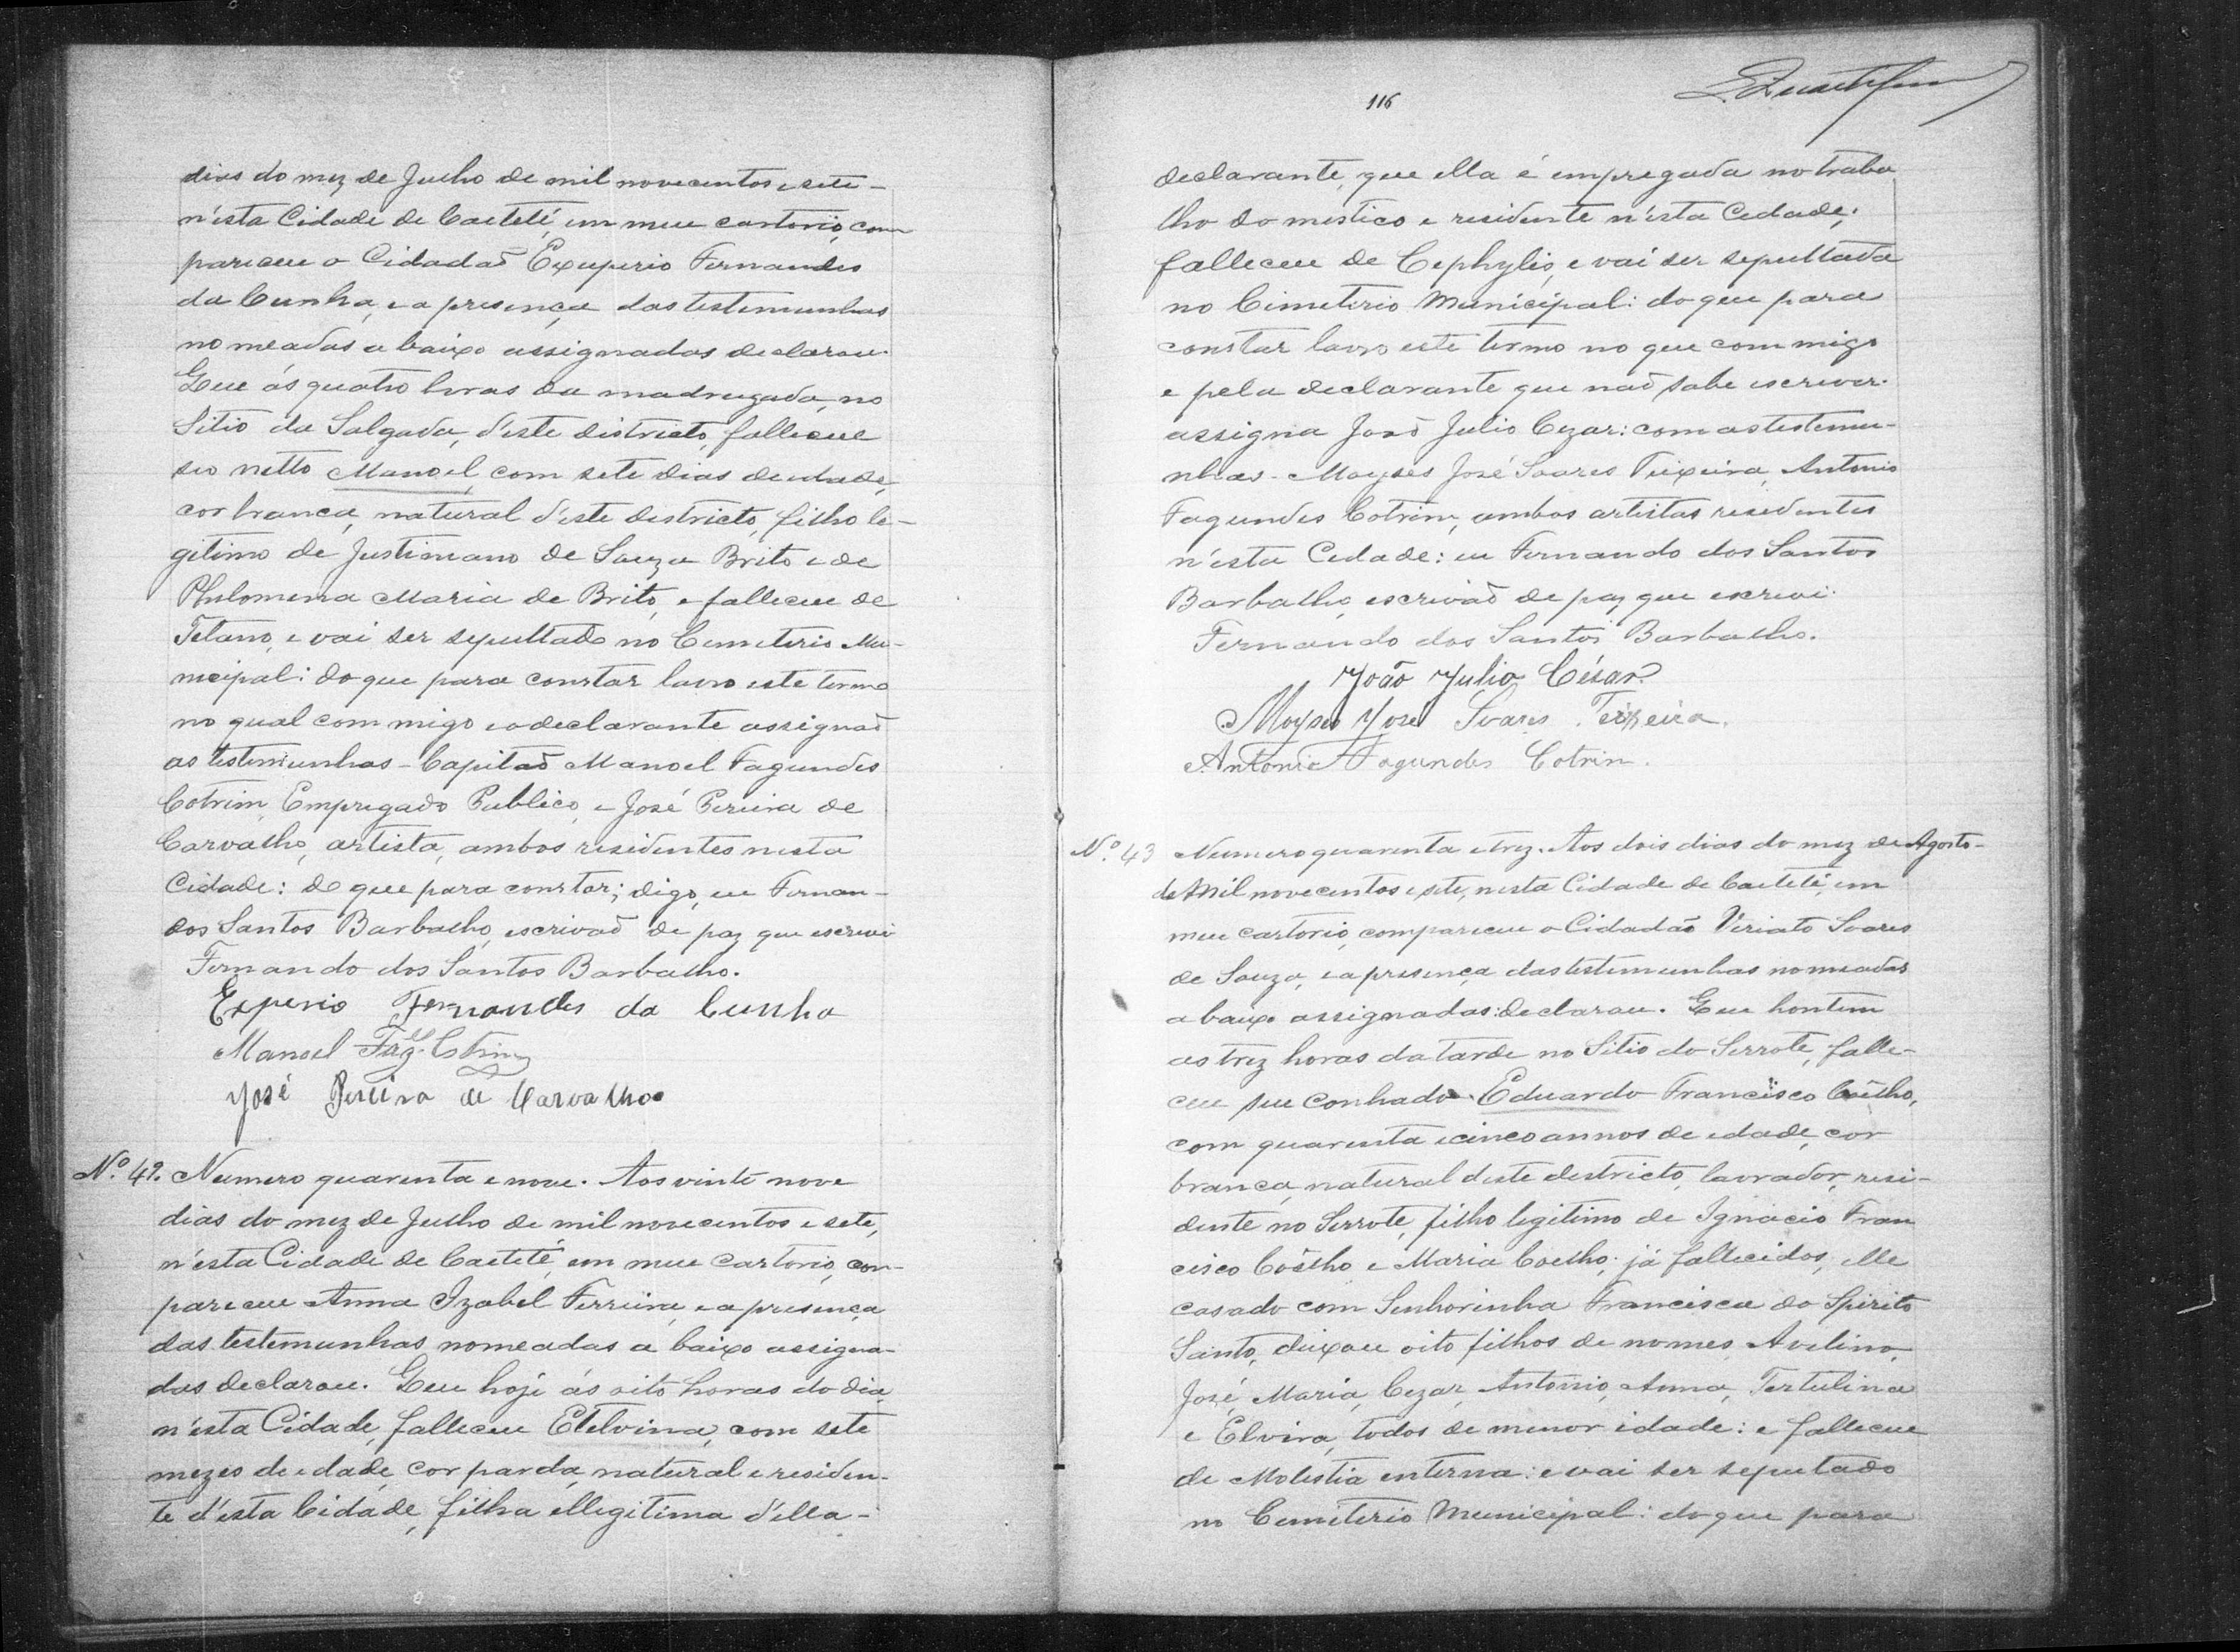 dias do mez de Julho de mil novecentos e sete
n'esta Cidade de Caeteté, em meu cartorio, com
pareceu o Cidadaõ Exuperio Fernandes
da Cunha, e a presença das testemunhas
nomeadas a baixo assignadas declarou.
Que ás quatro horas da madrugada, no
Sitio da Salgada, d'este districto, falleceu
seo netto Manoel, com sete dias de edade,
cor branca, natural d'este destricto, filho le-
gitimo de Justiniano de Souza Brito e de
Philomena Maria de Brito, e falleceu de
Tetano, e vai ser sepultado no Cemeterio Mu-
nicipal: do que para constar lavro este termo
no qual commigo e o declarante assignaõ
as testemunhas - Capitaõ Manoel Fagundes
Cotrim, Empregado Publico, e José Pereira de
Carvalho, artista, ambos residentes nesta
Cidade: do que para constar; digo, eu Fernan-
dos Santos Barbalho, escrivaõ de paz que escrevi
Fernando dos Santos Barbalho.
Experio Fernandes da Cunha
Manoel Fag.es Cotrim
José Pereira de Carvalho
N.º 42. Numero quarenta e nove. Aos vinte nove
dias do mez de Julho de mil novecentos e sete,
n'esta Cidade de Caeteté, em meu Cartorio, com-
pareceu Anna Izabel Ferreira, e a presença
das testemunhas nomeadas a baixo assigna-
das declarou. Que hoje ás oito horas do dia,
n'esta Cidade, falleceu Etelvina, com sete
mezes de edade, cor parda, natural e residen-
te d'esta Cidade, filha illegitima d'ella -
116
declarante, que ella é empregada no traba
lho domestico e residente n'esta Cidade;
falleceu de Cephylis, e vai ser sepultada
no Cimeterio Municipal: do que para
constar lavro este termo no que commigo
e pela declarante que naõ sabe escrever.
assigna Joaõ Julio Cezar: com as testemu-
nhas - Moysés José Soares Teixeira, Antonio
Fagundes Cotrim, ambos artistas residentes
n'esta Cidade: eu Fernando dos Santos
Barbalho, escrivaõ de paz que escrevi.
Fernando dos Santos Barbalho.
João Julio César.
Moyses José Soares Teixeira.
Antonio Fagundes Cotrin.
N.º 43 Numero quarenta e trez. Aos dois dias do mez de Agosto-
de Mil novecentos e sete, nesta Cidade de Caeteté, em
meu cartorio, compareceu o Cidadão Viriato Soares
de Souza, e a presença das testemunhas nomeadas
abaixo assignadas: declarou. Que hontem
as trez horas da tarde no Sitio do Serrote, falle-
ceu seu conhado Eduardo Francisco Coêlho,
com quarenta e cinco annos de edade, cor
branca, natural deste destricto, lavrador, resi-
dente no Serrote, filho legitimo de Ignacio Fran
cisco Coêlho e Maria Coelho, já fallecidos, elle
casado com Senhorinha Francisca do Spirito
Santo, deixou oito filhos de nomes Avelino,
José, Maria, Cezar, Antonio, Anna, Tertulina
e Elvira, todos de menor idade: e falleceu
de Molestia enterna: e vai ser sepultado
no Cemeterio Municipal: do que para